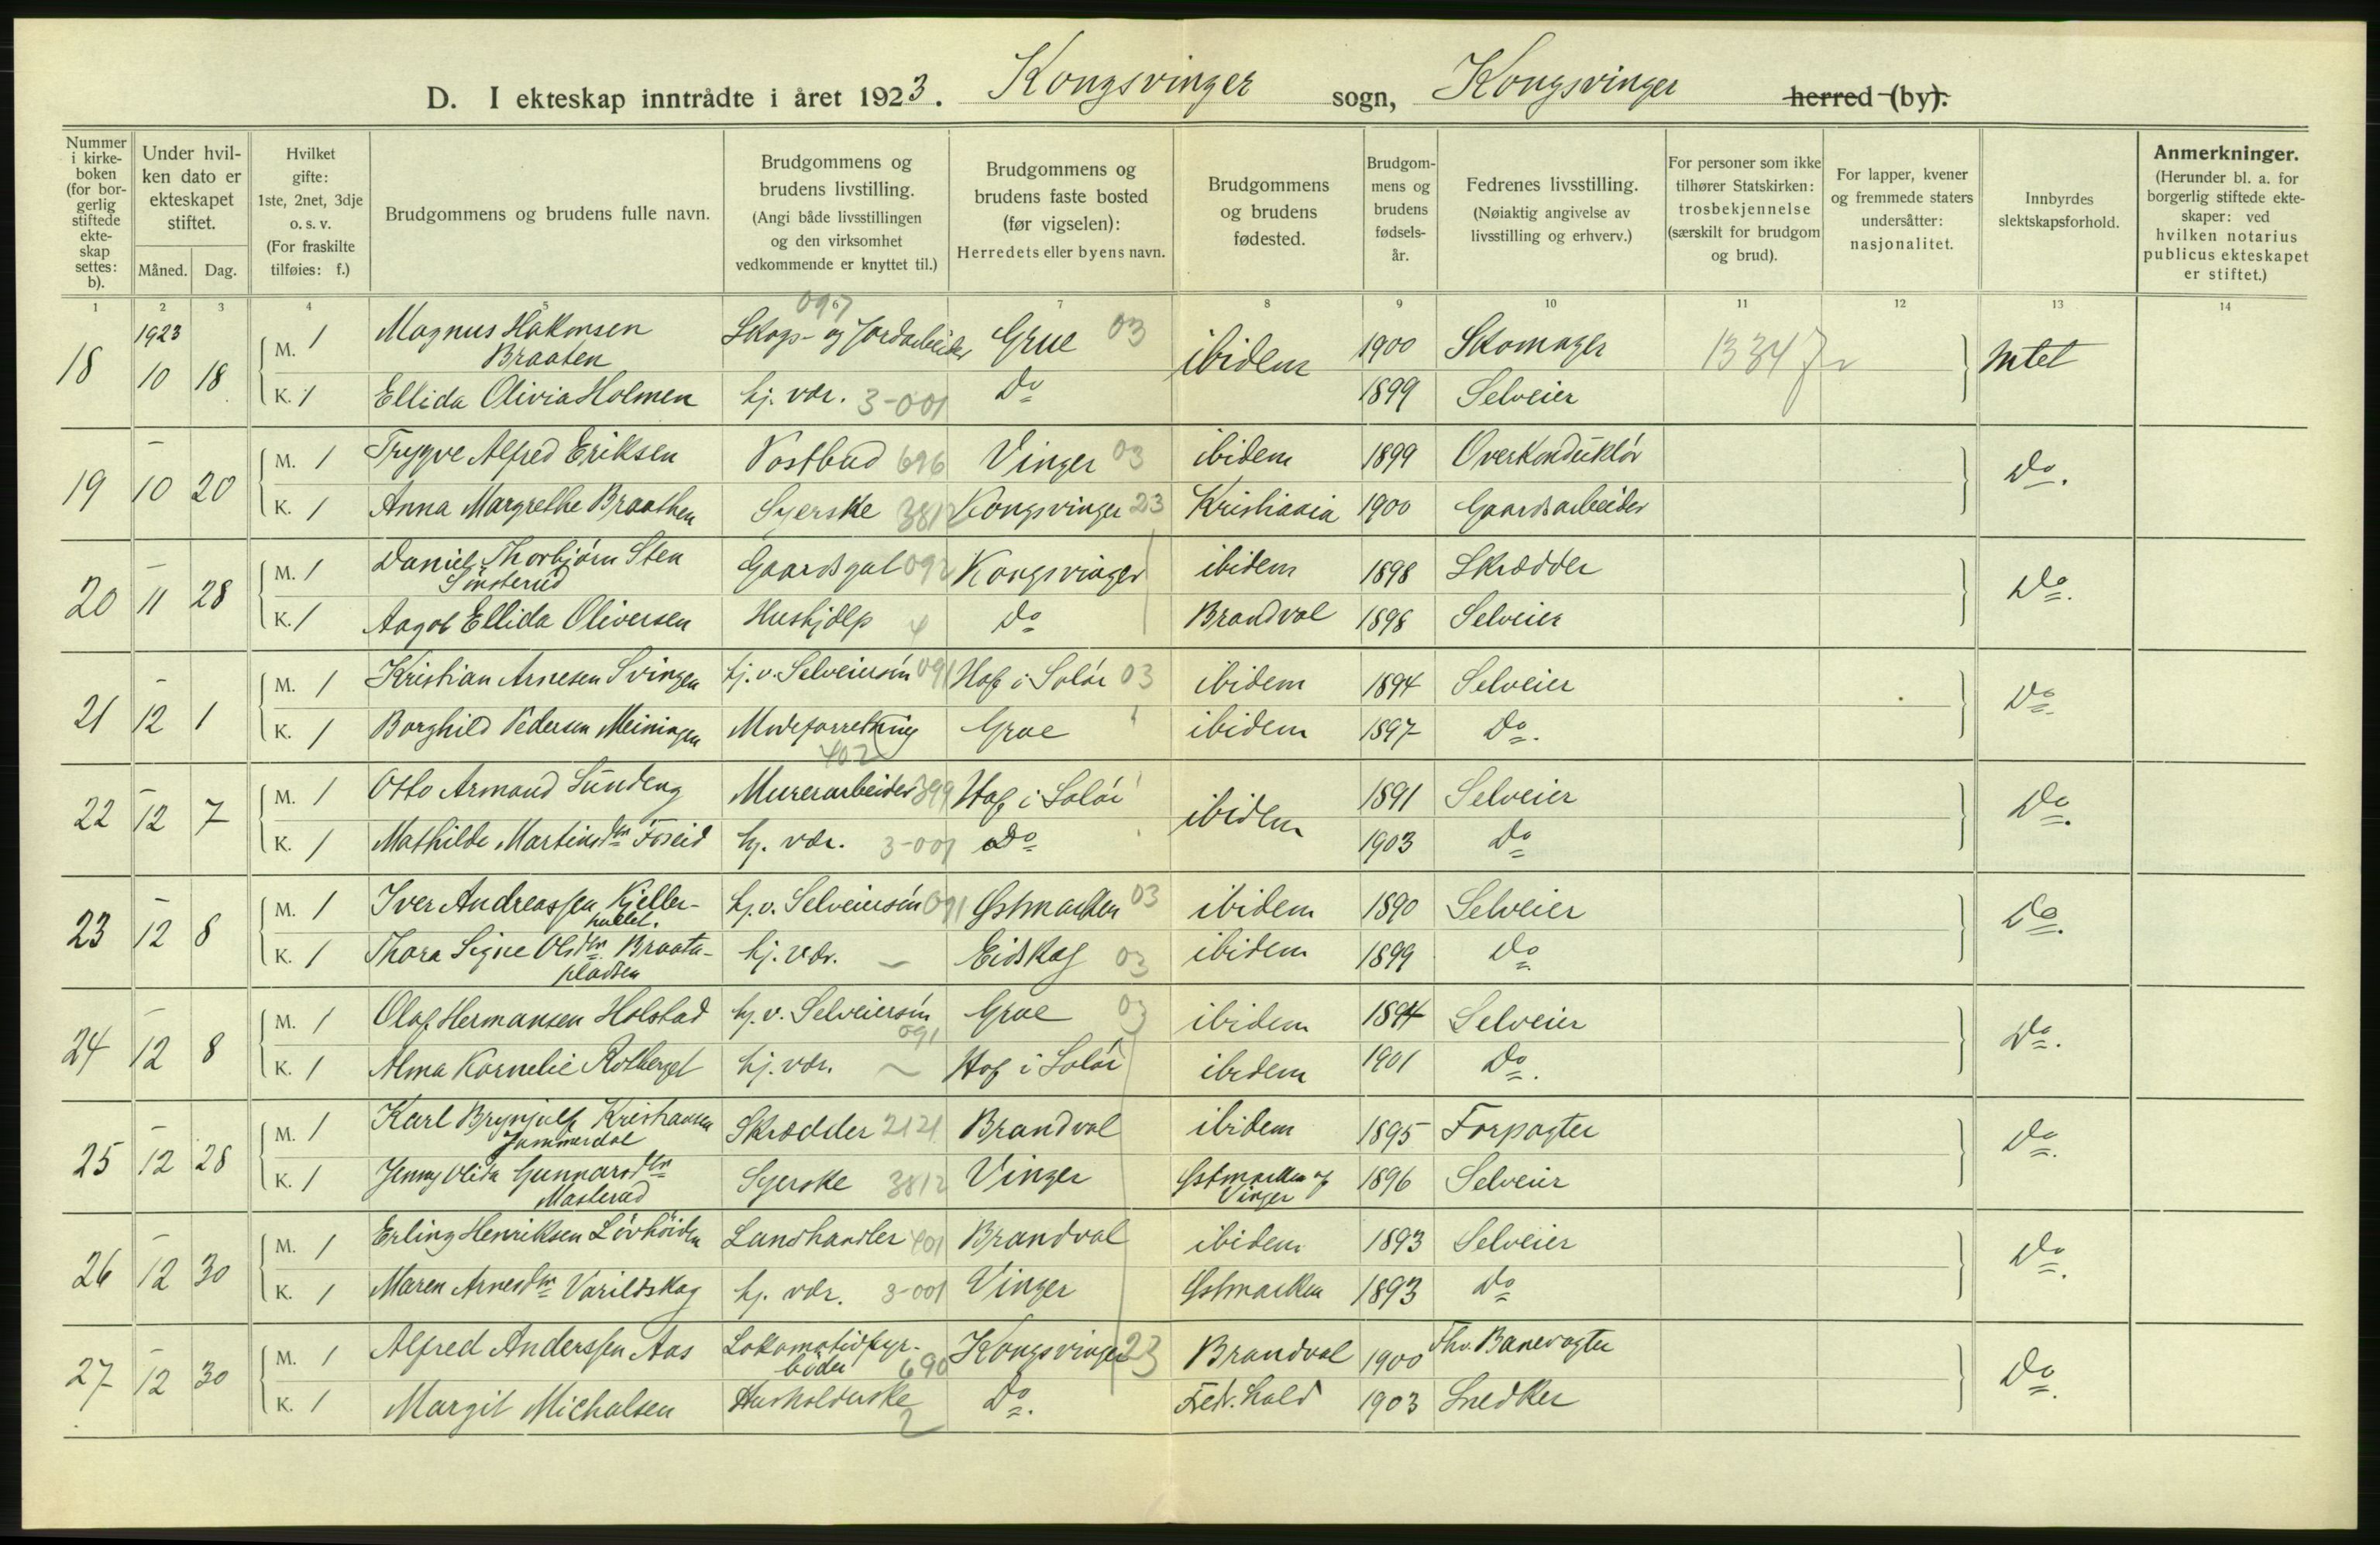 D. I ekteskap inntrådte i året 1923. Kongsvinger sogn, Kongsvinger herred (by).
Nummer i kirke-boken (for bor-gerlig stiftede ekte-skap settes: b).
Under hvil-ken dato er ekteskapet stiftet.
Måned. Dag.
Hvilket gifte: 1ste, 2net, 3dje o. s. v. (For fraskilte tilføies: f.)
Brudgommens og brudens fulle navn.
Brudgommens og brudens livstilling. (Angi både livsstillingen og den virksomhet vedkommende er knyttet til.)
Brudgommens og brudens faste bosted (før vigselen): Herredets eller byens navn.
Brudgommens og brudens fødested.
Brudgom-mens og brudens fødsels-år.
Fedrenes livsstilling. (Nøiaktig angivelse av livsstilling og erhverv.)
For personer som ikke tilhører Statskirken: trosbekjennelse (særskilt for brudgom og brud).
For lapper, kvener og fremmede staters undersåtter: nasjonalitet.
Innbyrdes slektskapsforhold.
Anmerkninger. (Herunder bl. a. for borgerlig stiftede ekte-skaper: ved hvilken notarius publicus ekteskapet er stiftet.)
1 2 3 4 5 6 7 8 9 10 11 12 13 14
1923
18 10 18 M. 1 Magnus Hakonsen Braaten Skogs- og Jordarbeider 097 Grue 03 ibidem 1900 Skomager Intet
K. 1 Ellida Olivia Holmen hj. vær. 3-001 Do 1899 Selveier
19 – 10 20 M. 1 Trygve Alfred Eriksen Postbud 696 Vinger 03 ibidem 1899 Overkonduktør Do.
K. 1 Anna Margrethe Braathen Syerske 3812 Kongsvinger 23 Kristiania 1900 Gaardsarbeider
20 – 11 28 M. 1 Daniel Thorbjørn Sten Sønsterud Gaardsgut 092 Kongsvinger ibidem 1898 Skrædder Do.
K. 1 Aagot Ellida Oliversen Hushjælp 4 Do Brandval 1898 Selveier
21 – 12 1 M. 1 Kristian Arnesen Svingen hj. v. Selveiersøn 091 Hof i Solør 03 ibidem 1894 Selveier Do
K. 1 Borghild Pedersen Meiningen Modeforretning 402 Grue ibidem 1897 Do.
22 – 12 7 M. 1 Otto Armand Sundeng Murerarbeider 399 Hof i Solør ibidem 1891 Selveier Do.
K. 1 Mathilde Martinsdtr Foseid hj. vær. 3-001 Do 1903 Do
23 – 12 8 M. 1 Iver Andreassen Kjeller- hj. v. Selveiersøn 091 Østmarken 03 ibidem 1890 Selveier Do.
K. 1 Thora Signe Olsdtr. Braata-pladsen hj. vær. – Eidskog 03 ibidem 1899 Do
24 – 12 8 M. 1 Olaf Hermansen Holstad hj. v. Selveiersøn 091 Grue 03 ibidem 1894 Selveier Do.
K. 1 Alma Kornelie Rotberget hj. vær. – Hof i Solør ibidem 1901 Do.
25 – 12 28 M. 1 Karl Brynjulf Kristiansen Jammerdal Skrædder 2121 Brandval ibidem 1895 Forpagter Do.
K. 1 Jenny Olida Gunnarsdtr Masterud Syerske 3812 Vinger Østmarken og Vinger 1896 Selveier
26 – 12 30 M. 1 Erling Henriksen Løvhøiden Landhandler 401 Brandval ibidem 1893 Selveier Do.
K. 1 Maren Arnesdtr Varildskog hj. vær. 3-001 Vinger Østmarken 1893 Do
27 – 12 30 M. 1 Alfred Anderssen Aas Lokomotivfyr-bøder 690 Kongsvinger 23 Brandval 1900 Fhv. Banevogter Do.
K. 1 Margit Michalsen Husholderske 2 Do. Fedr.hald 1903 Snedker